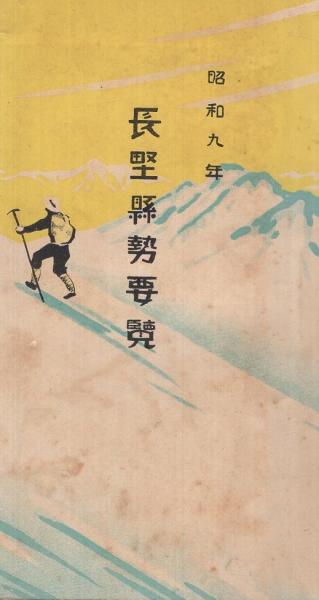 昭和九年
長野縣勢要覽